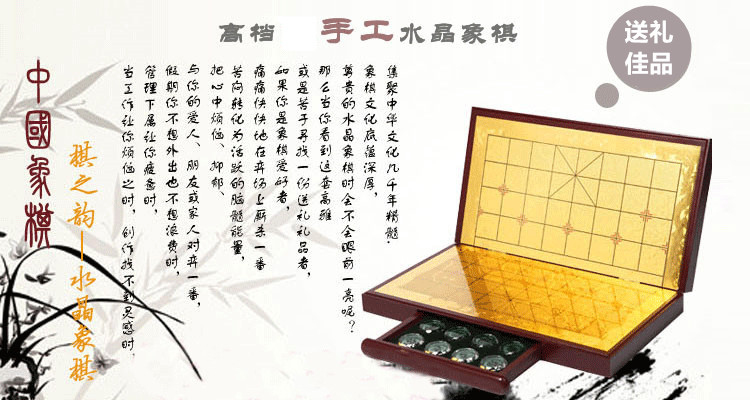 高档 手工水晶象棋
送礼
佳品
中國象棋
棋之韵—水晶象棋
当工作让你烦恼之时，创作找不到灵感时，
管理下属让你疲惫时，
假期你不想外出也不想浪费时，
与你的爱人、朋友或家人对弈一番，
把心中烦恼、抑郁、
苦闷转化为活跃的脑髓能量，
痛痛快快地在弈场上厮杀一番
如果你是象棋爱好者，
或是苦于寻找一份送礼礼品者，
那么当你看到这套高雅
尊贵的水晶象棋时会不会眼前一亮呢？
象棋文化底蕴深厚，
集聚中华文化几千年精髓.